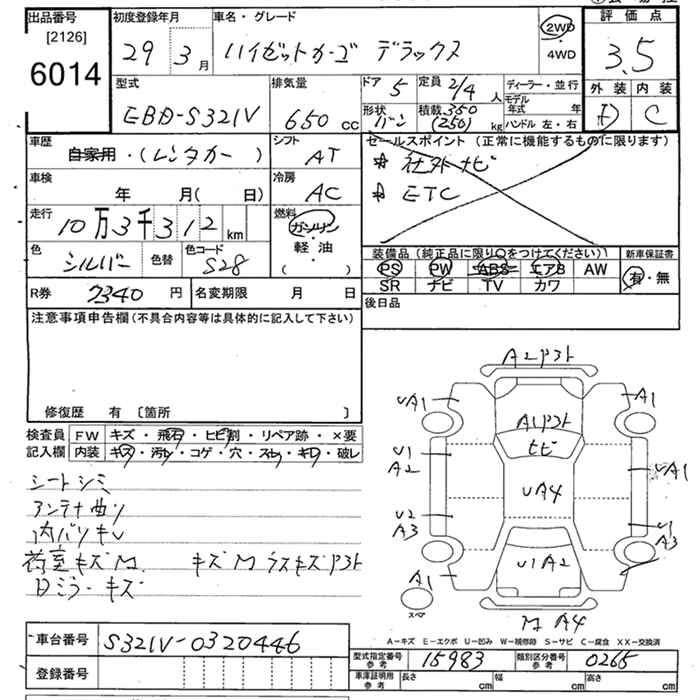 出品番号 [2126] 6014
初度登録年月 29年 3月
車名・グレード ハイゼットカーゴ デラックス
2WD・4WD
評価点 3.5
外装 内装 C
型式 EBD-S321V
排気量 650 cc
ドア 5
定員 2/4 人
形状 バン
積載 350 (250) kg
ディーラー・並行
モデル年式 年
ハンドル 左・右
車歴 自家用・(レンタカー)
シフト AT
セールスポイント (正常に機能するものに限ります)
社外ナビ
ETC
車検 年 月( 日)
冷房 AC
走行 10万3千312 km
燃料 ガソリン・軽油・( )
色 シルバー 色替 色コード S28
装備品 (純正品に限り○をつけてください) 新車保証書
PS PW ABS エアB AW 有・無
SR ナビ TV カワ
R券 7340 円 名変期限 月 日
後日品
注意事項申告欄 (不具合内容等は具体的に記入して下さい)
修復歴 有 〔箇所 〕
検査員記入欄
FW キズ・飛石・ヒビ割・リペア跡・×要
内装 キズ・汚レ・コゲ・穴・スレ・キレ・破レ
シートシミ
アンテナ曲り
内バリキレ
荷室キズM. キズM ラスキズPヨト
日ミラーキズ
A2Pヨト
UA1 A1
A1Pヨト
ヒビ
U1
A2
UA1
UA4
U2
A3
U1
A3
A1
U1A2
スペア
M A4
A-キズ E-エクボ U-凹み W-補修跡 S-サビ C-腐食 XX-交換済
車台番号 S321V-0320446
登録番号
型式指定番号 参考 15983 類別区分番号 参考 0265
車庫証明用 参考 長さ cm 幅 cm 高さ cm